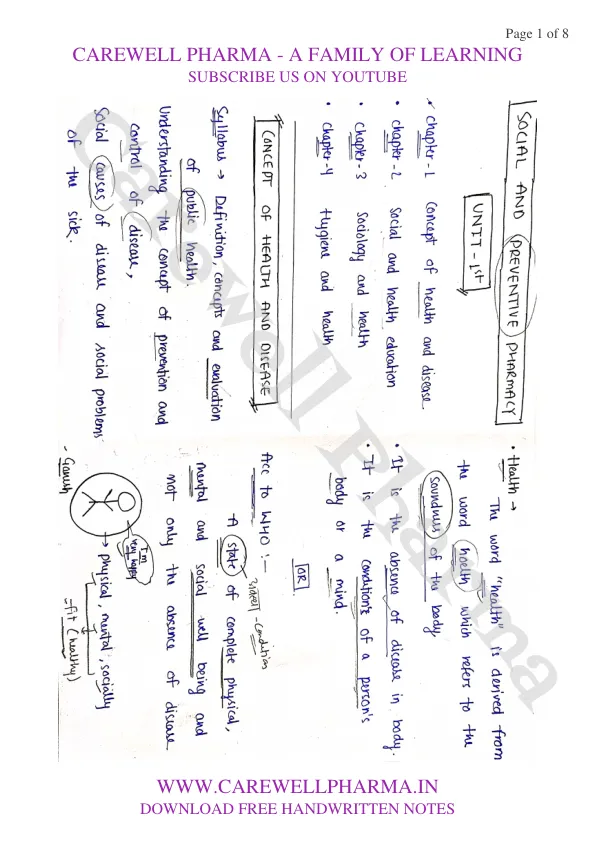 Page 1 of 8
CAREWELL PHARMA - A FAMILY OF LEARNING
SUBSCRIBE US ON YOUTUBE
SOCIAL AND PREVENTIVE PHARMACY
UNIT - 1st
• chapter-1 Concept of health and disease
• chapter-2 Social and health education
• chapter-3 Sociology and health
• chapter-4 Hygiene and health
CONCEPT OF HEALTH AND DISEASE
Syllabus → Definition, concepts and evaluation
of public health.
Understanding the concept of prevention and
control of disease,
Social causes of disease and social problems
of the sick.
• Health →
The word "health" is derived from
the word hoelth which refers to the
soundness of the body
• It is the absence of disease in body.
• It is the condition's of a person's
body or a mind.
OR
Acc to WHO :-
- A state of complete physical,
condition
mental and social well being and
not only the absence of disease
I'm
very happy
→ physical, mental, socially
- fit (healthy)
- Ganesh
Carewell Pharma
WWW.CAREWELLPHARMA.IN
DOWNLOAD FREE HANDWRITTEN NOTES